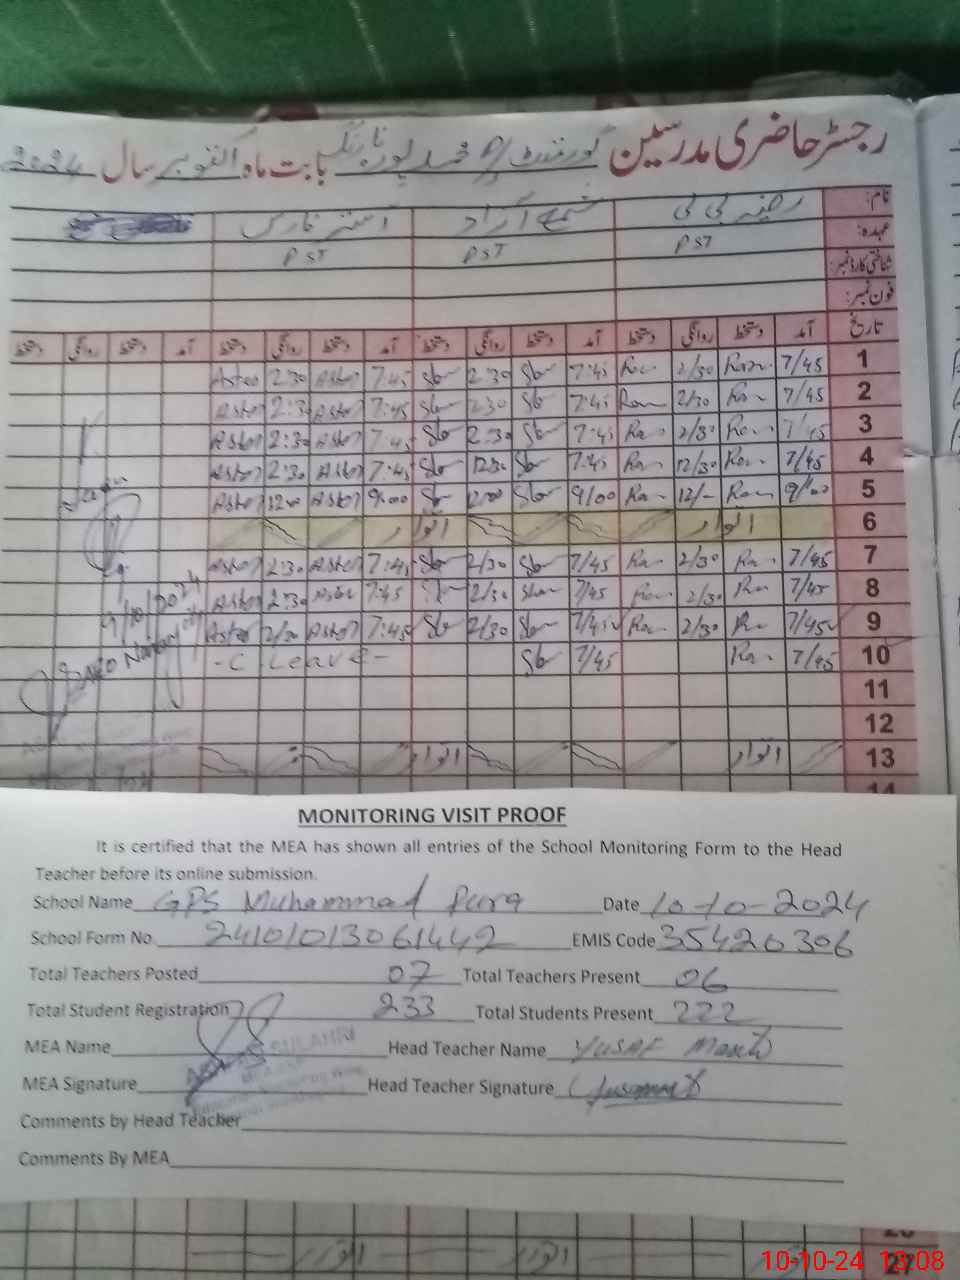 رجسٹر حاضری مدرسین گورنمنٹ محمد پورہ نارنگ بابت ماہ اکتوبر سال 2024
نام: رضیہ بی بی شمع آزاد آستر
عہدہ: PST PST PST
شناختی کارڈ نمبر:
فون نمبر:
تاریخ آمد دستخط روانگی دستخط آمد دستخط روانگی دستخط آمد دستخط روانگی دستخط آمد دستخط روانگی دستخط
1 7/45 Ran 2/30 Ran 7:45 Sb 2:30 Sb 7:45 Aster 2:30 Aster
2 7/45 Ran 2/30 Ran 7:45 Sb 2:30 Sb 7:45 Aster 2:30 Aster
3 7/45 Ran 2/30 Ran 7:45 Sb 2:30 Sb 7:45 Aster 2:30 Aster
4 7/45 Ran 12/30 Ran 7:45 Sb 12:30 Sb 7:45 Aster 2:30 Aster
5 9/00 Ran 12/- Ran 9/00 Sb 12:00 Sb 9:00 Aster 12:00 Aster
6 اتوار اتوار اتوار
7 7/45 Ran 2/30 Ran 7/45 Sb 2/30 Sb 7:45 Aster 2:30 Aster
8 7/45 Ran 2/30 Ran 7/45 2/30 7:45 Aster 2:30 Aster
9 7/45 Ran 2/30 Ran 7/45 Sb 2/30 Sb 7:45 Aster 2/30 Aster
10 7/45 Ran 7/45 Sb - C Leave -
11
12
13 اتوار اتوار
14
9/10/2024
MONITORING VISIT PROOF
It is certified that the MEA has shown all entries of the School Monitoring Form to the Head
Teacher before its online submission.
School Name GPS Muhammad Pura Date 10-10-2024
School Form No. 24101013061442 EMIS Code 35420306
Total Teachers Posted 07 Total Teachers Present 06
Total Student Registration 233 Total Students Present 222
MEA Name Head Teacher Name Yusaf Masih
MEA Signature Head Teacher Signature
Comments by Head Teacher
Comments By MEA
27 اتوار اتوار اتوار
10-10-24 13:08